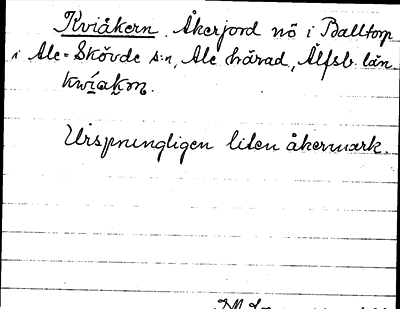 Kviåkern. Åkerjord nö i Balltorp
i Ale-Skövde s:n, Ale härad, Älfsb. län
kwíakm.
Ursprungligen liten åkermark.